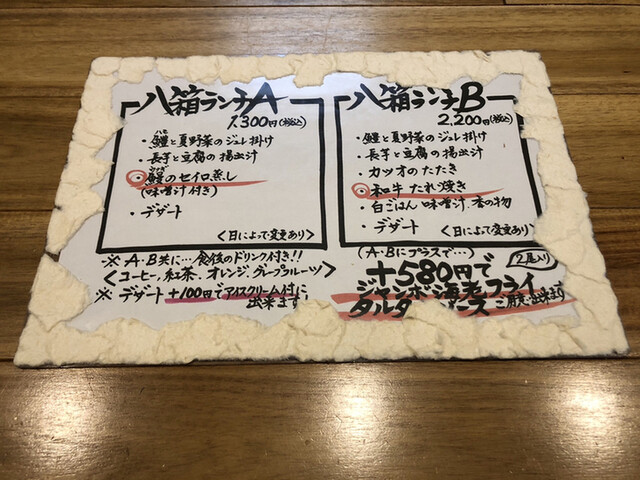 八箱ランチA
1,300円(税込)
・鱧と夏野菜のジュレ掛け
・長芋と豆腐の揚出汁
鰻のセイロ蒸し
(味噌汁付き)
・デザート
<日によって変更あり>
八箱ランチB
2,200円(税込)
・鱧と夏野菜のジュレ掛け
・長芋と豆腐の揚出汁
・カツオのたたき
和牛たれ焼き
・白ごはん 味噌汁 香の物
・デザート
<日によって変更あり>
※A・B共に…食後のドリンク付き!!
<コーヒー,紅茶,オレンジ,グレープフルーツ>
※デザート+100円でアイスクリーム付に
出来ます!
(A・Bにプラスで…)
+580円で
2尾入り
ジャンボ海老フライ
タルタルソース ご用意出来ます